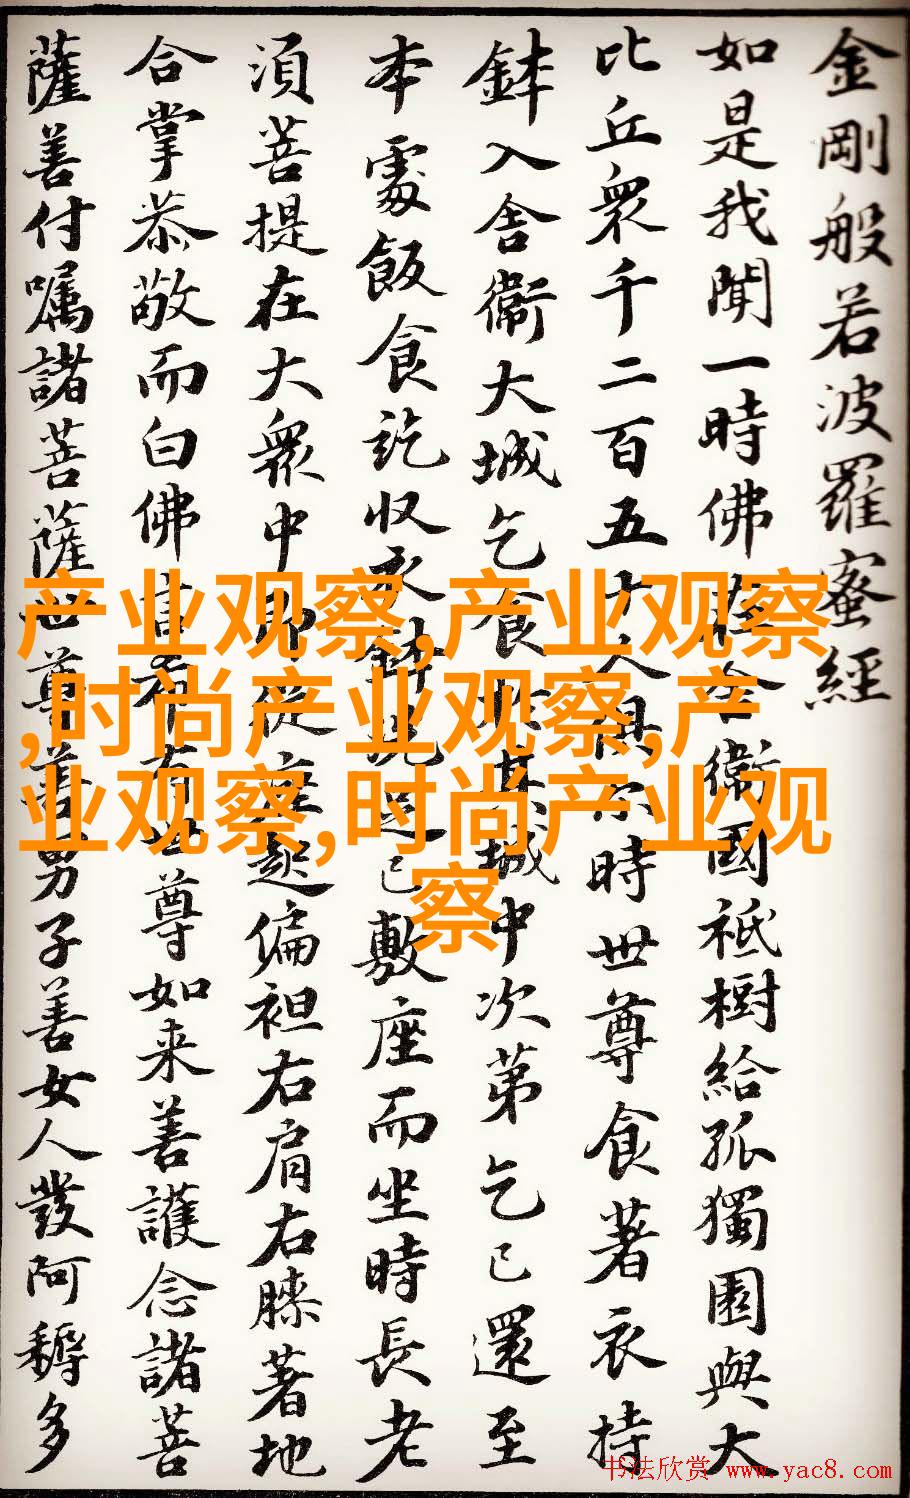 金剛般若波羅蜜經
如是我聞一時佛在舍衞國祇樹給孤獨園與大
比丘衆千二百五十人俱尒時世尊食著衣持
鉢入舍衞大城乞食於其城中次第乞已還至
本處飯食訖收衣鉢洗足已敷座而坐時長老
須菩提在大衆中即從座起偏袒右肩右膝著地
合掌恭敬而白佛言希有世尊如来善護念諸菩
薩善付嘱諸菩薩世尊善男子善女人發阿耨多
产业观察,产业观察
,时尚产业观察,产
业观察,时尚产业观
察
书法欣赏 www.yac8.com